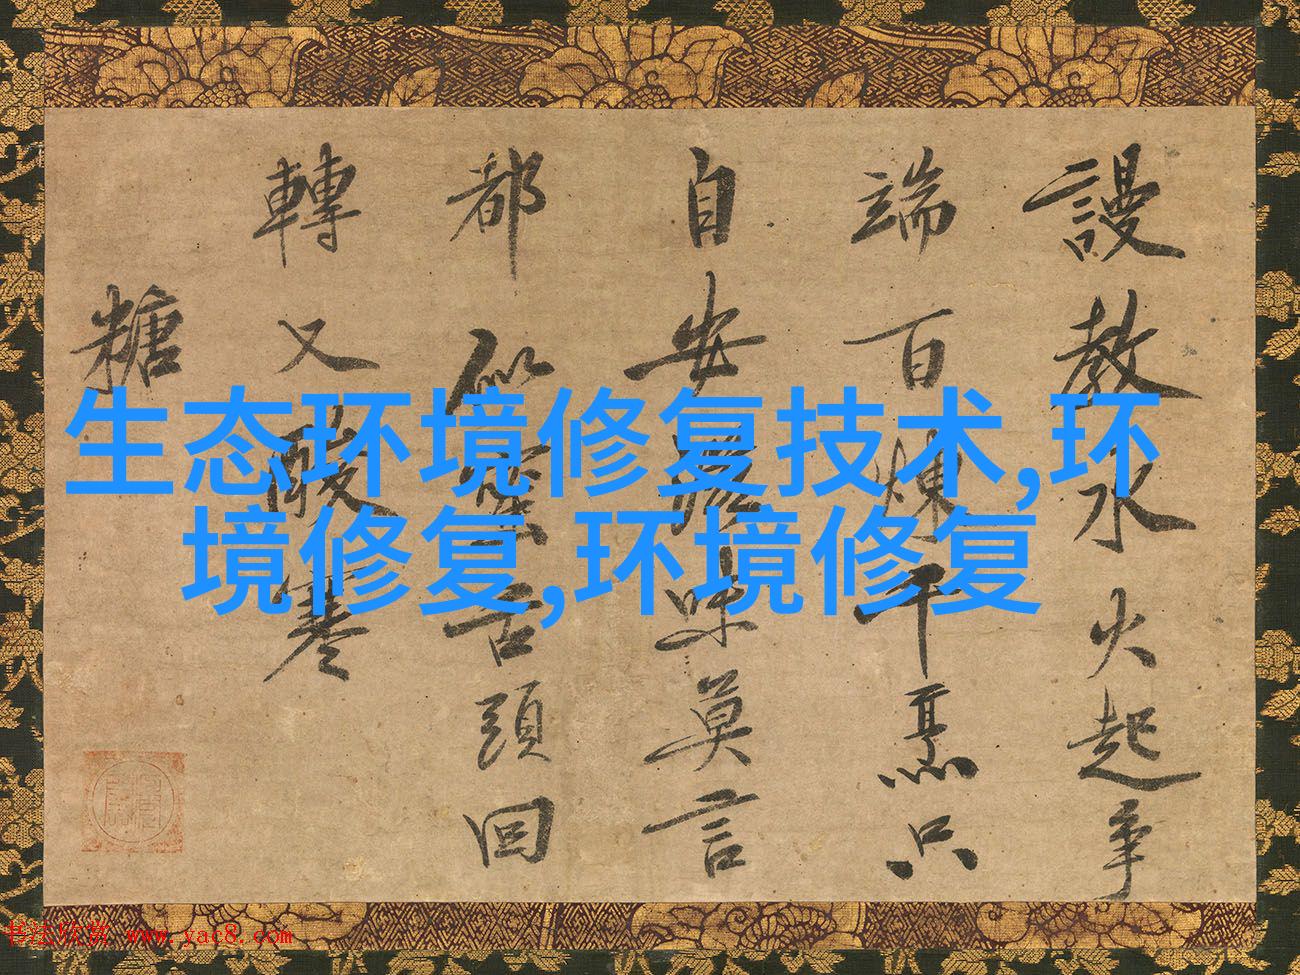 謾教水火起争
端百煉千熏只
自安
味莫言
都似蜜舌頭回
轉又酸寒
糖
生态环境修复技术,环
境修复,环境修复
书法欣赏 www.yac8.com